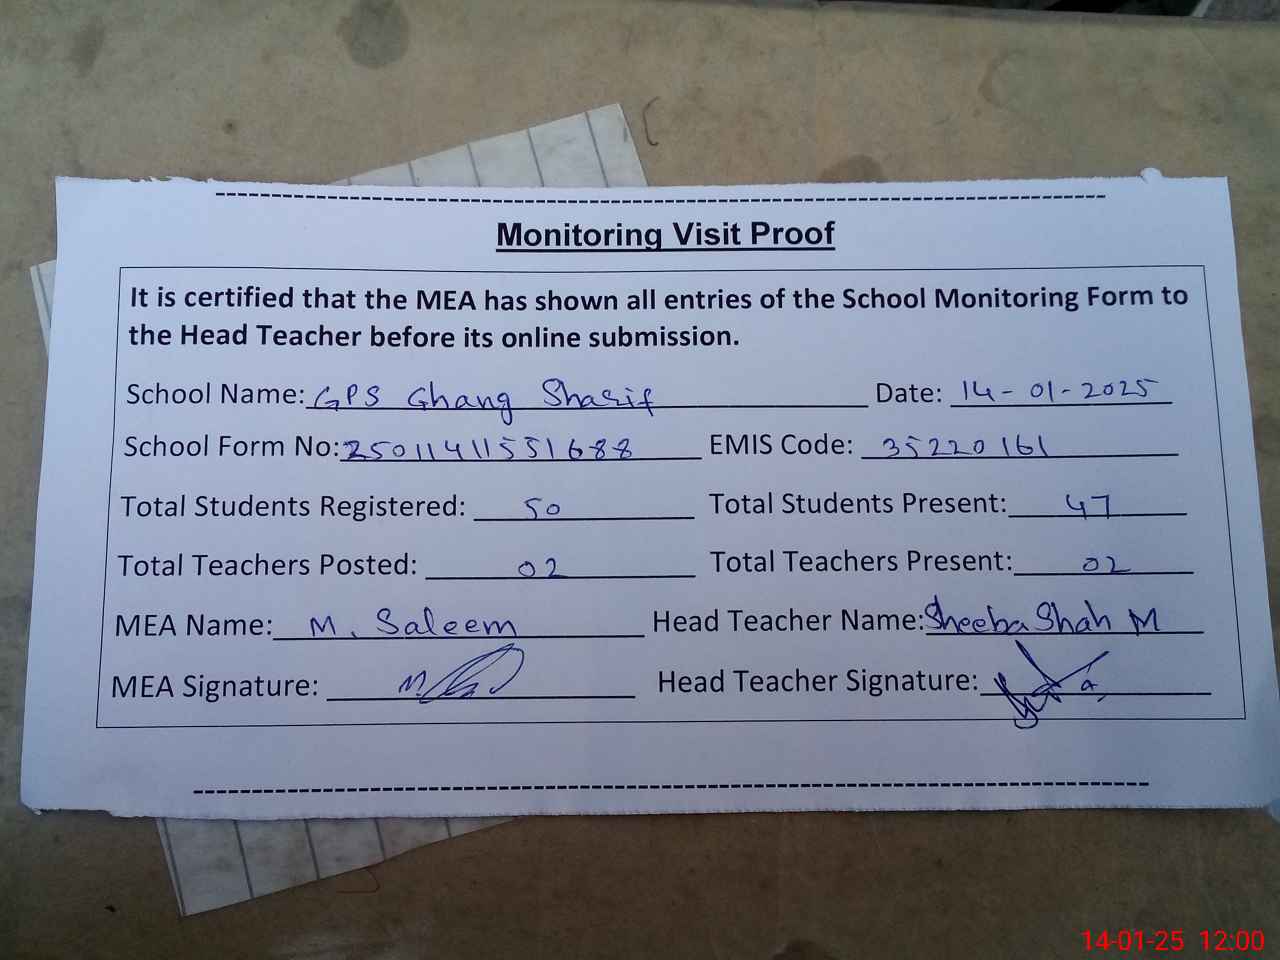 Monitoring Visit Proof
It is certified that the MEA has shown all entries of the School Monitoring Form to
the Head Teacher before its online submission.
School Name: GPS Ghang Sharif Date: 14-01-2025
School Form No: 25011411551688 EMIS Code: 35220161
Total Students Registered: 50 Total Students Present: 47
Total Teachers Posted: 02 Total Teachers Present: 02
MEA Name: M. Saleem Head Teacher Name: Sheeba Shah M
MEA Signature: Head Teacher Signature:
14-01-25 12:00